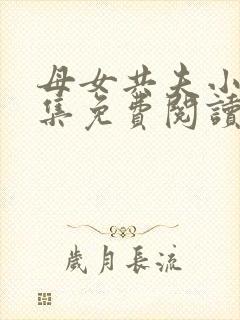 母女共夫小
集免費閱讀
歲月長流